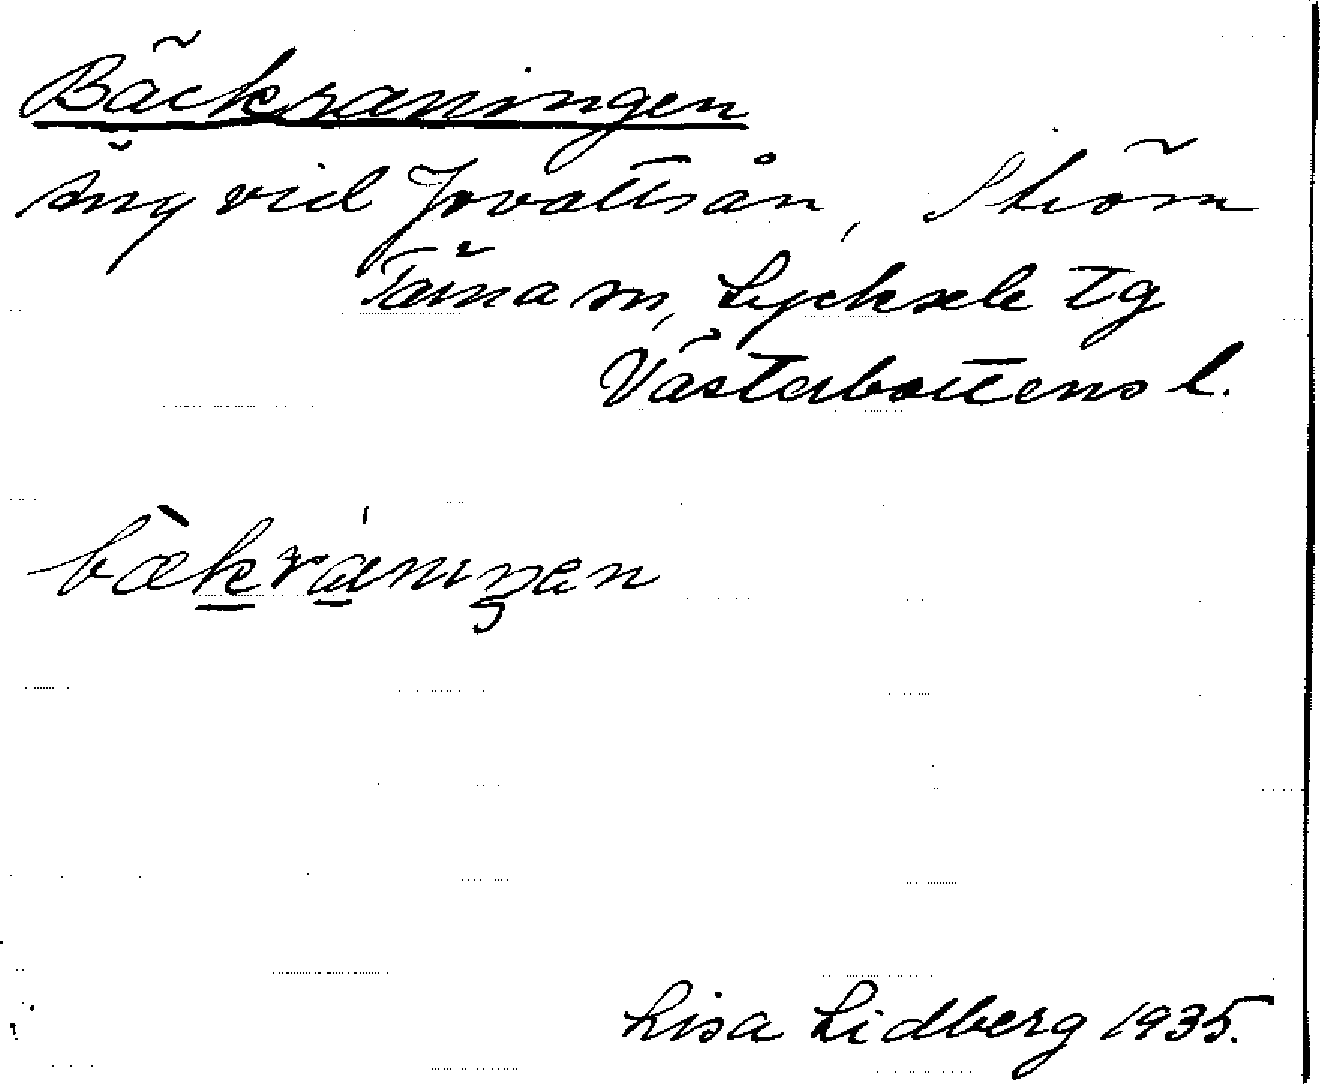 Bäckraningen
äng vid Jovattsån, Ström
Tärna sn, Lycksele tg
Västerbottens l.
bæ̀krániŋen
Lisa Lidberg 1935.